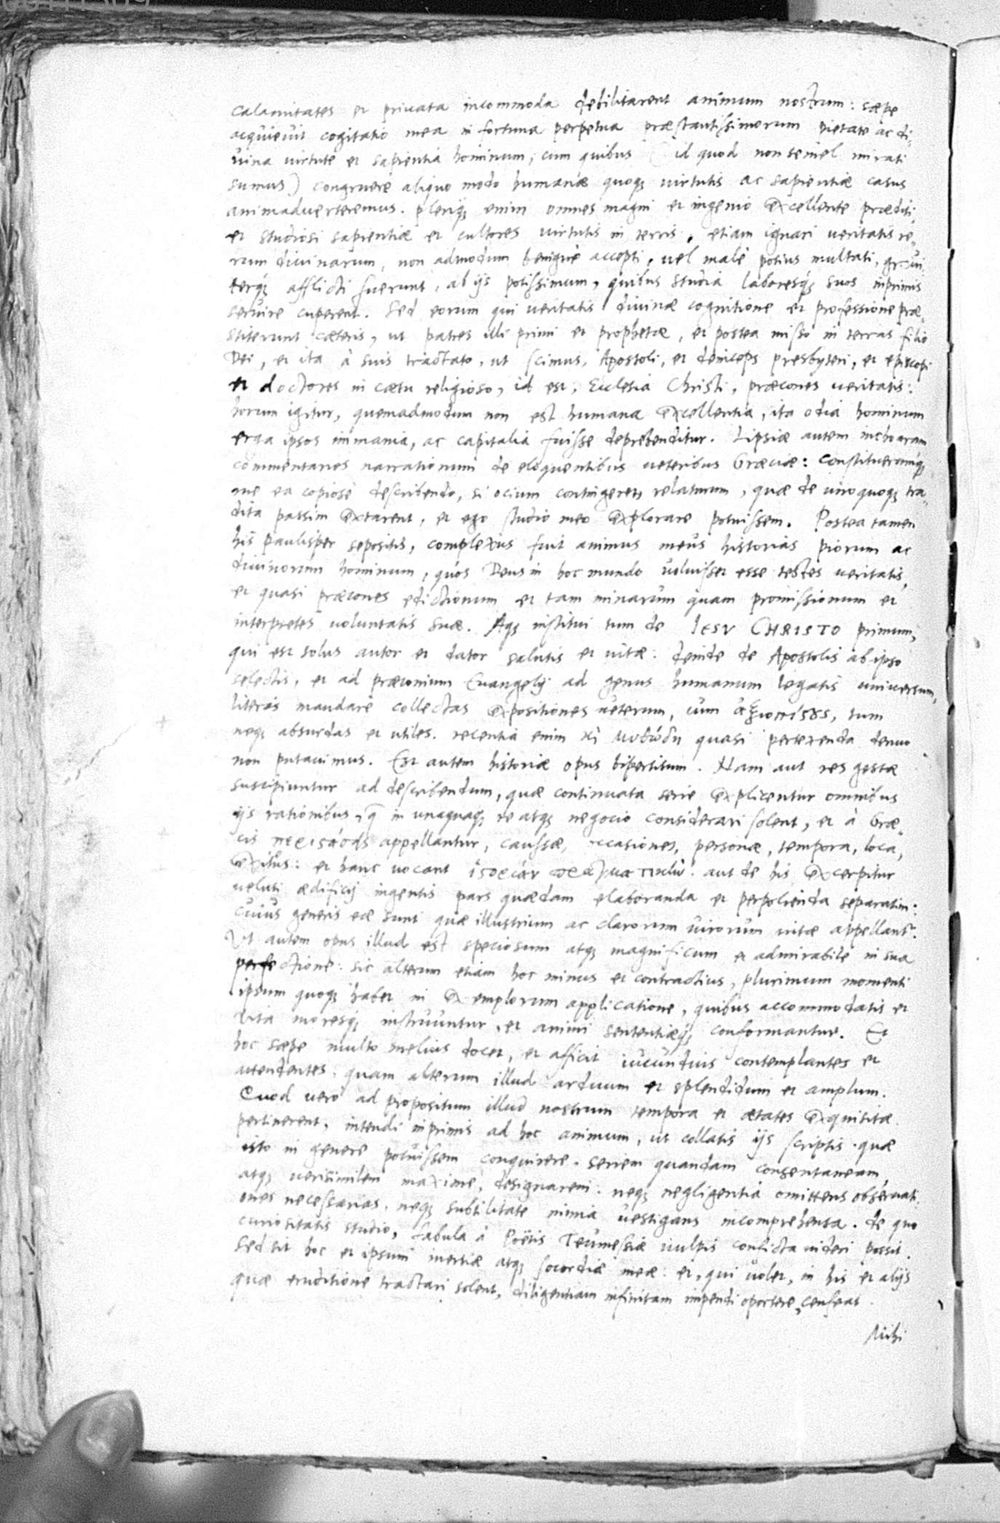 calamitates et privata incommoda debilitarent animum nostrum: sæpe
acquievit cogitatio mea in fortuna perpetua præstantissimorum pietate ac di,
vina virtute et sapientia hominum, cum quibus (id quod non semel mirati
sumus) congruere aliquo modo humanæ quoq; virtutis ac sapientiæ casus
animadverteremus. pleriq; enim omnes magni et ingenio excellente præditi,
et studiosi sapientiæ et cultores virtutis in terris, etiam ignari veritatis re,
rum divinarum, non admodum benigne accepti, vel male potius multati, gravi,
terq; afflicti fuerunt, ab ijs potissimum, quibus studia laboresq; suos inprimis
servire cuperent. Sed eorum qui veritatis divinæ cognitione et professione præ,
stiterunt cæteris, ut patres illi primi et prophetæ, et postea misso in terras filio
Dei, et ita à suis tractato, ut scimus, Apostoli, et deinceps presbyteri, et episcopi
et doctores in cœtu religioso, id est, Ecclesia Christi, præcones veritatis:
horum igitur, quemadmodum non est humana excellentia, ita odia hominum
erga ipsos immania, ac capitalia fuisse deprehenditur. Lipsiæ autem inchoaram
commentarios narrationum de eloquentibus veteribus Græciæ: constitueramq;
me ea copiose describendo, si ocium contingeret, relaturum, quæ de unoquoq; tra,
dita passim extarent, et ego studio meo explorare potuissem. Postea tamen
his paulisper sepositis, complexus fuit animus meus historias piorum ac
divinorum hominum, quos Deus in hoc mundo voluisset esse testes veritatis,
et quasi præcones edictionum et tam minarum quam promissionum et
interpretes voluntatis suæ. Atq; institui tum de IESV CHRISTO primum,
qui est solus autor et dator salutis et vitæ: deinde de Apostolis ab ipso
selectis, et ad præconium Evangelij ad genus humanum legatis universum,
literis mandare collectas expositiones veterum, cùm ἀξιοπίστους, tum
neq; absurdas et utiles. recentia enim quasi pertexenda denuo
non putavimus. Est autem historiæ opus bipertitum. Nam aut res gestæ
suscipiuntur ad describendum, quæ continuata serie explicentur omnibus
ijs rationibus, q in unaquaq; re atq; negocio considerari solent, et à Græ,
cis appellantur, caussæ, occasiones, personæ, tempora, loca,
exitus: et hanc vocant aut de his excerpitur
veluti ædificij ingentis pars quædam elaboranda et perpolienda separatim:
Cuius generis eæ sunt quæ illustrium ac clarorum virorum vitæ appellant.
Ut autem opus illud est speciosum atq; magnificum et admirabile in sua
perfectione: sic alterum etiam hoc minus et contractius, plurimum momenti
ipsum quoq; habet in exemplorum applicatione, quibus accommodatis et
vita moresq; instruuntur, et animi sententiæq; conformantur. Et
hoc sæpe multo melius docet, et afficit iucundius contemplantes et
attendentes: quam alterum illud arduum et splendidum et amplum.
Quod vero ad propositum illud nostrum tempora et ætates exquisitæ
pertinerent, intendi inprimis ad hoc animum, ut collatis ijs scriptis quæ
isto in genere potuissem conquirere, seriem quandam consentaneam
atq; verisimilem maxime, designarem: neq; negligentia omittens observati,
ones necessarias, neq; subtilitate nimia vestigans incomprehensa. de quo
curiositatis studio, fabula à Poëtis Teumessiæ vulpis conficta videri possit.
Sed sit hoc et ipsum inertiæ atq; socordiæ meæ: et, qui volet, in his et alijs
quæ eruditione tractari solent, diligentiam infinitam impendi oportere, censeat.
Mihi